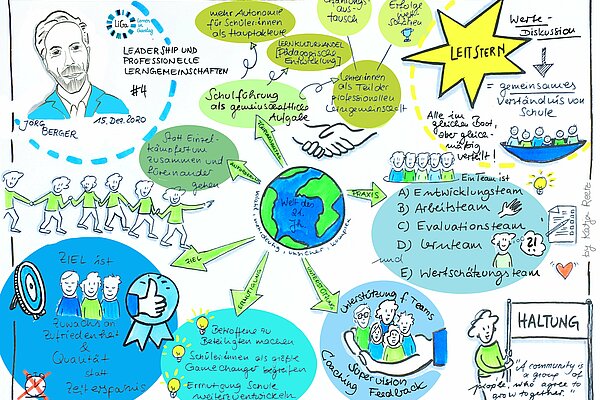 LiGa
Lernen im
Ganztag
LEADERSHIP UND
PROFESSIONELLE
LERNGEMEINSCHAFTEN
#4
JÖRG
BERGER
15. Dez. 2020
mehr Autonomie
für Schüler:innen
als Hauptakteure
LERNKULTURWANDEL
[Pädagogische
Entwicklung]
tausch
Erfolge
Lehrer:innen
als Teil der
professionellen
Lerngemeinschaft
Schulführung
als gemeinschaftliche
Aufgabe
LEITSTERN
Werte-
Diskussion
= gemeinsames
Verständnis von
Schule
Alle im
gleichen Boot,
aber gleich-
mäßig
verteilt!
Statt Einzel-
kämpfertum
zusammen und
füreinander
gehen
Welt des
21.
Jh.
PRAXIS
ZIEL
Ein Team ist
A) Entwicklungsteam
B) Arbeitsteam
C) Evaluationsteam
D) Lernteam
und
E) Wertschätzungsteam
?!
by Katja Reetz
ZIEL ist
Zuwachs an
Zufriedenheit
&
Qualität
statt
Zeitersparnis
Betroffene zu
Beteiligten machen
Schüler:innen als größte
Game Changer begreifen
Ermutigung Schule
weiterzuentwickeln
Unterstützung f. Teams
Coaching
Supervision
Feedback
HALTUNG
"A community is
a group of
people, who agree to
grow together."